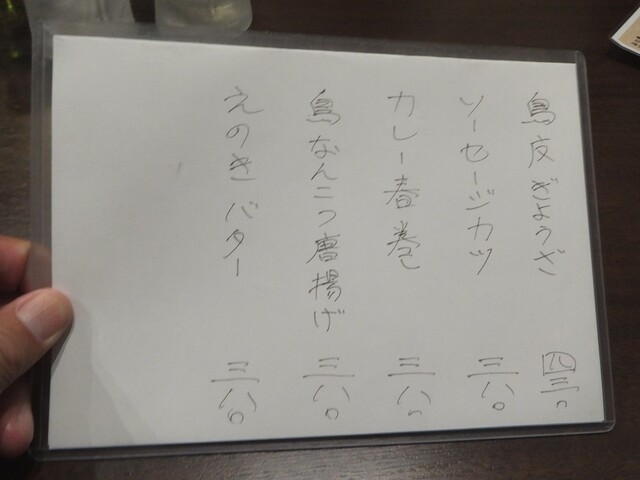 鳥皮ぎょうざ 四三〇
ソーセージカツ 三八〇
カレー春巻 三八〇
鳥なんこつ唐揚げ 三八〇
えのきバター 三八〇